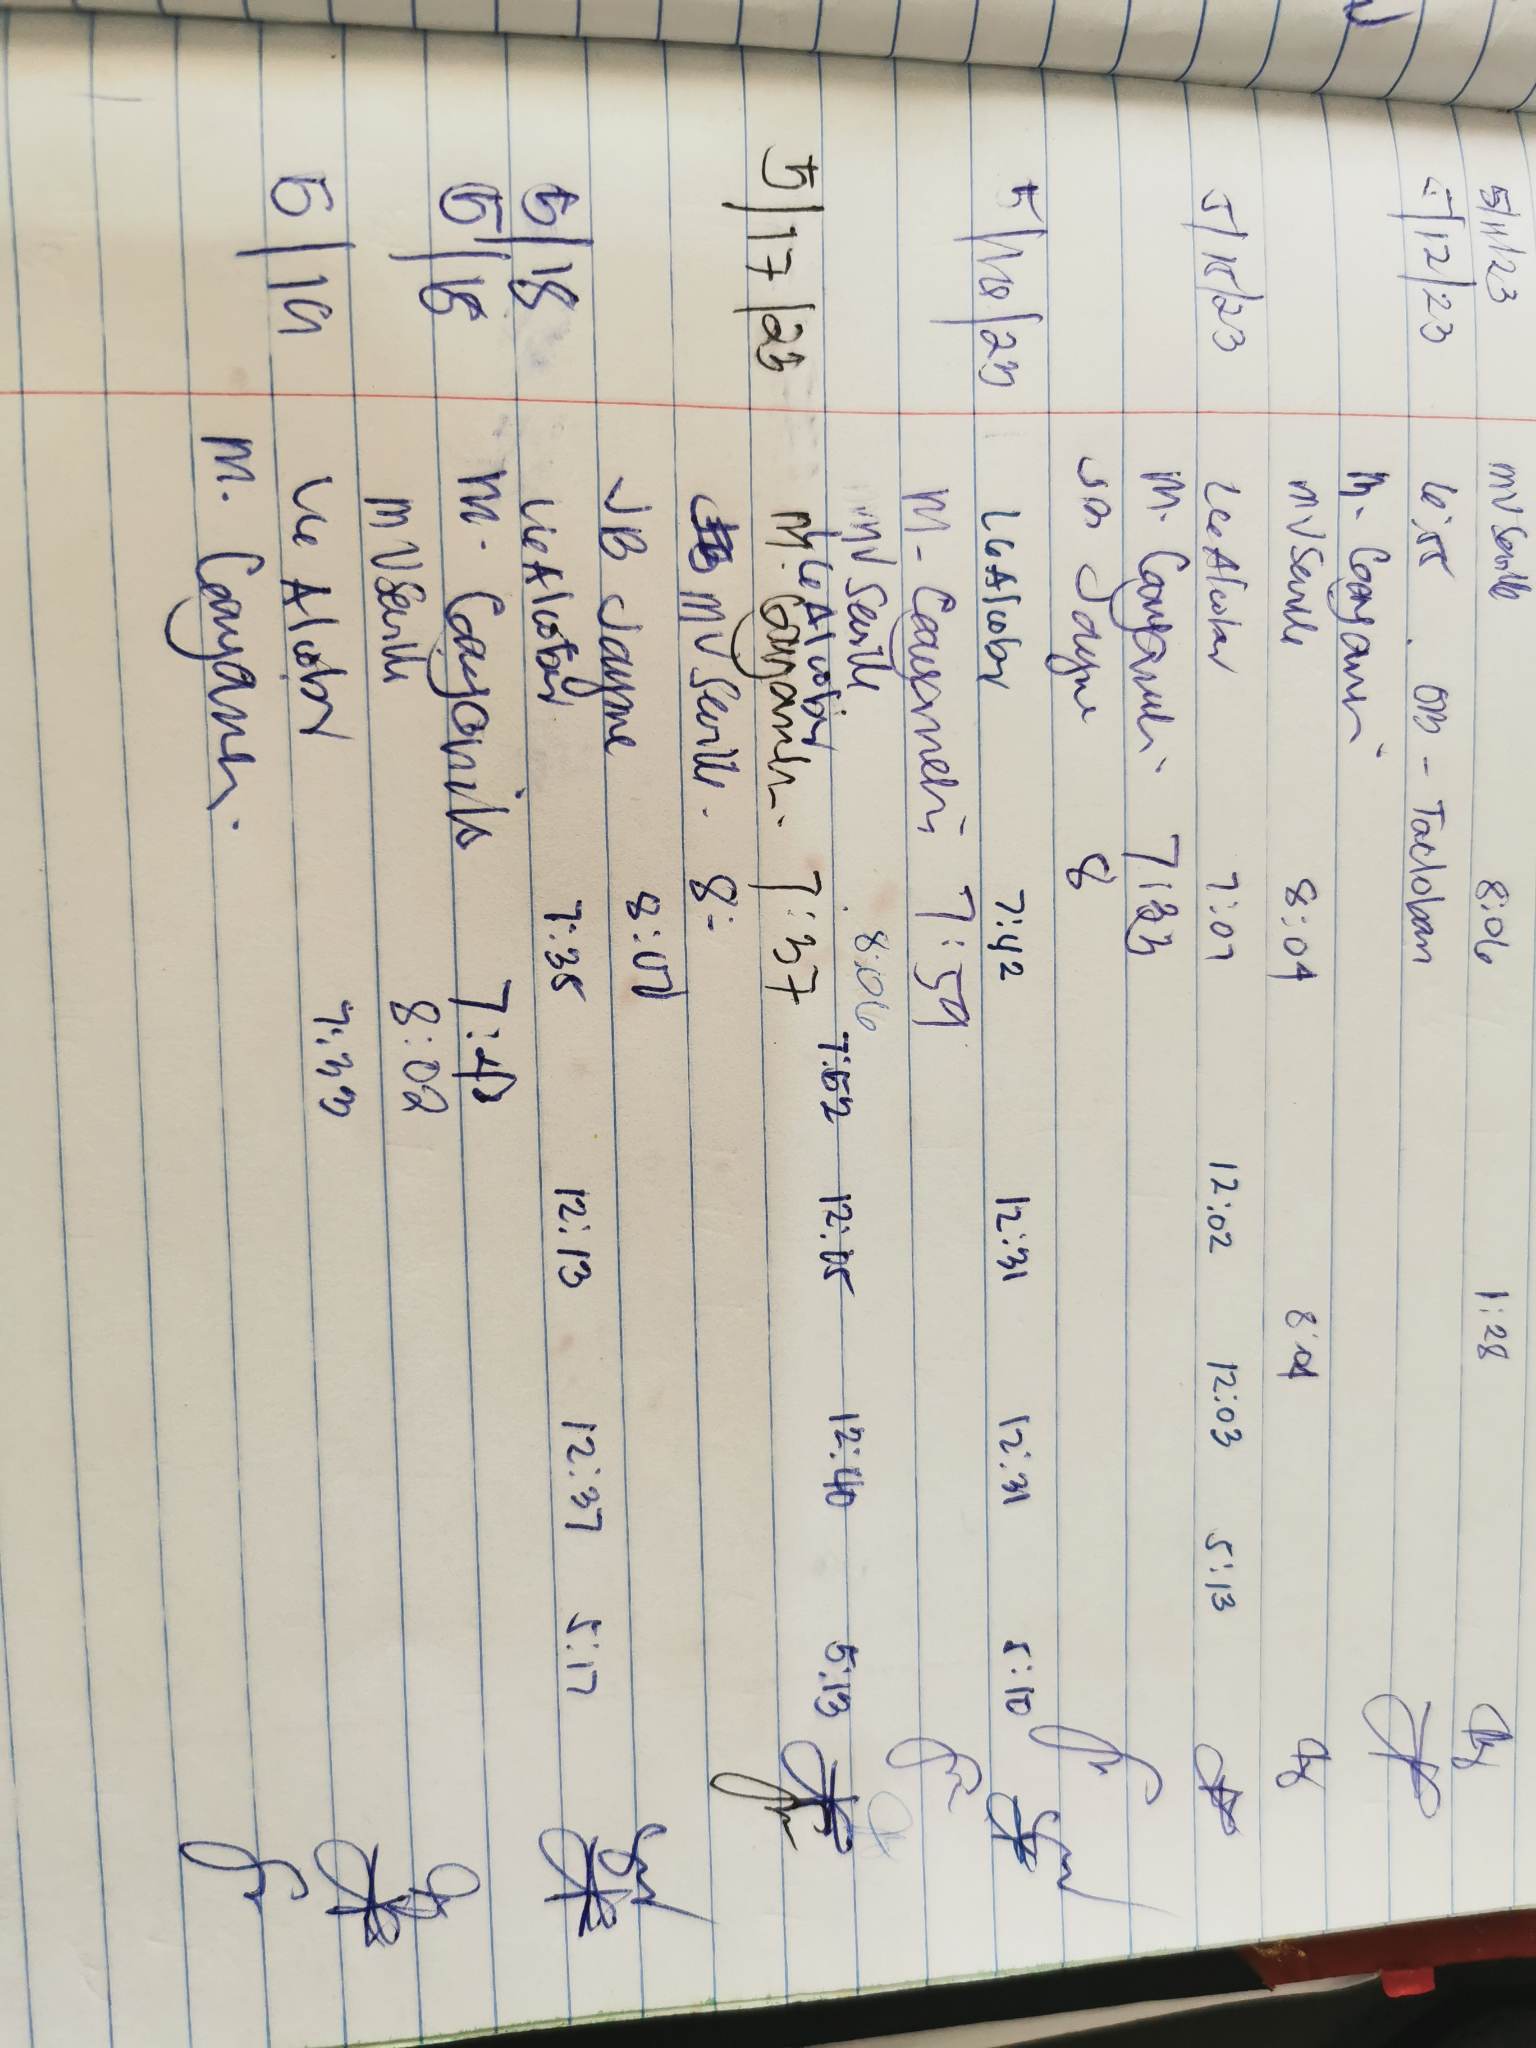 5/11/23 MV Seville 8:06 1:28
5/12/23 6:55 OB - Tacloban
M. Cayaneri
MV Seville 8:04 8:04
5/15/23 Lee Alcober 7:07 12:02 12:03 5:13
M. Cayaneri 7:33
Jayne 8
5/16/23 Lee Alcober 7:42 12:31 12:31 5:10
M. Cayaneri 7:59
MV Seville 8:06
Lee Alcober 7:52 12:05 12:40 5:13
5/17/23 M. Cayaneri 7:37
MV Seville 8:-
JB Jayne 8:07
5/18 Lie Alcober 7:35 12:13 12:37 5:17
5/18 M. 7:43
MV Seville 8:02
5/19 Lie Alcober 7:33
M. Cayaneri